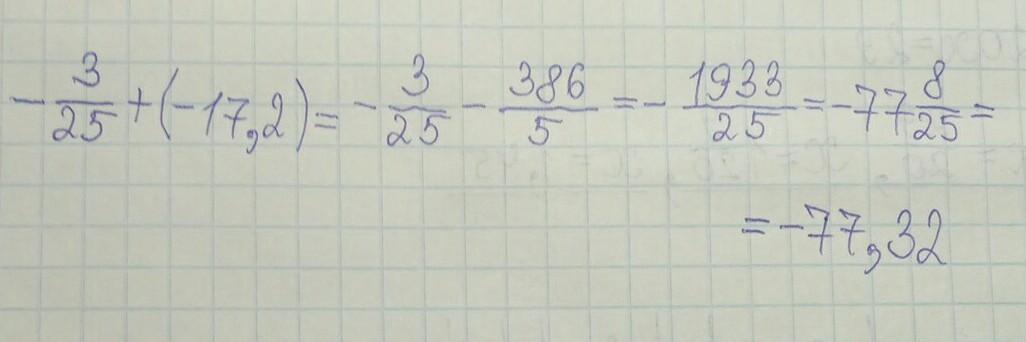 -3/25+(-17,2)=-3/25-386/5=-1933/25=-77 8/25=
=-77,32